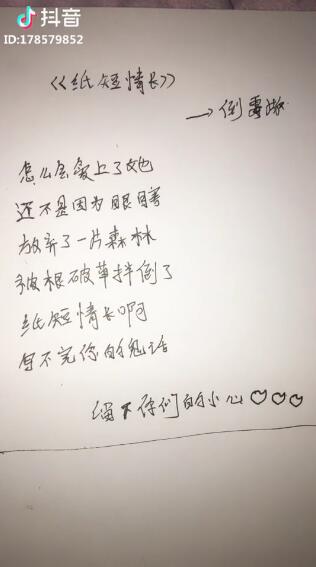 抖音
ID:178579852
《纸短情长》
→倒霉版
怎么会爱上了她
还不是因为眼瞎
放弃了一片森林
被根破草拌倒了
纸短情长啊
写不完你的鬼话
留下你们的小心♡♡♡